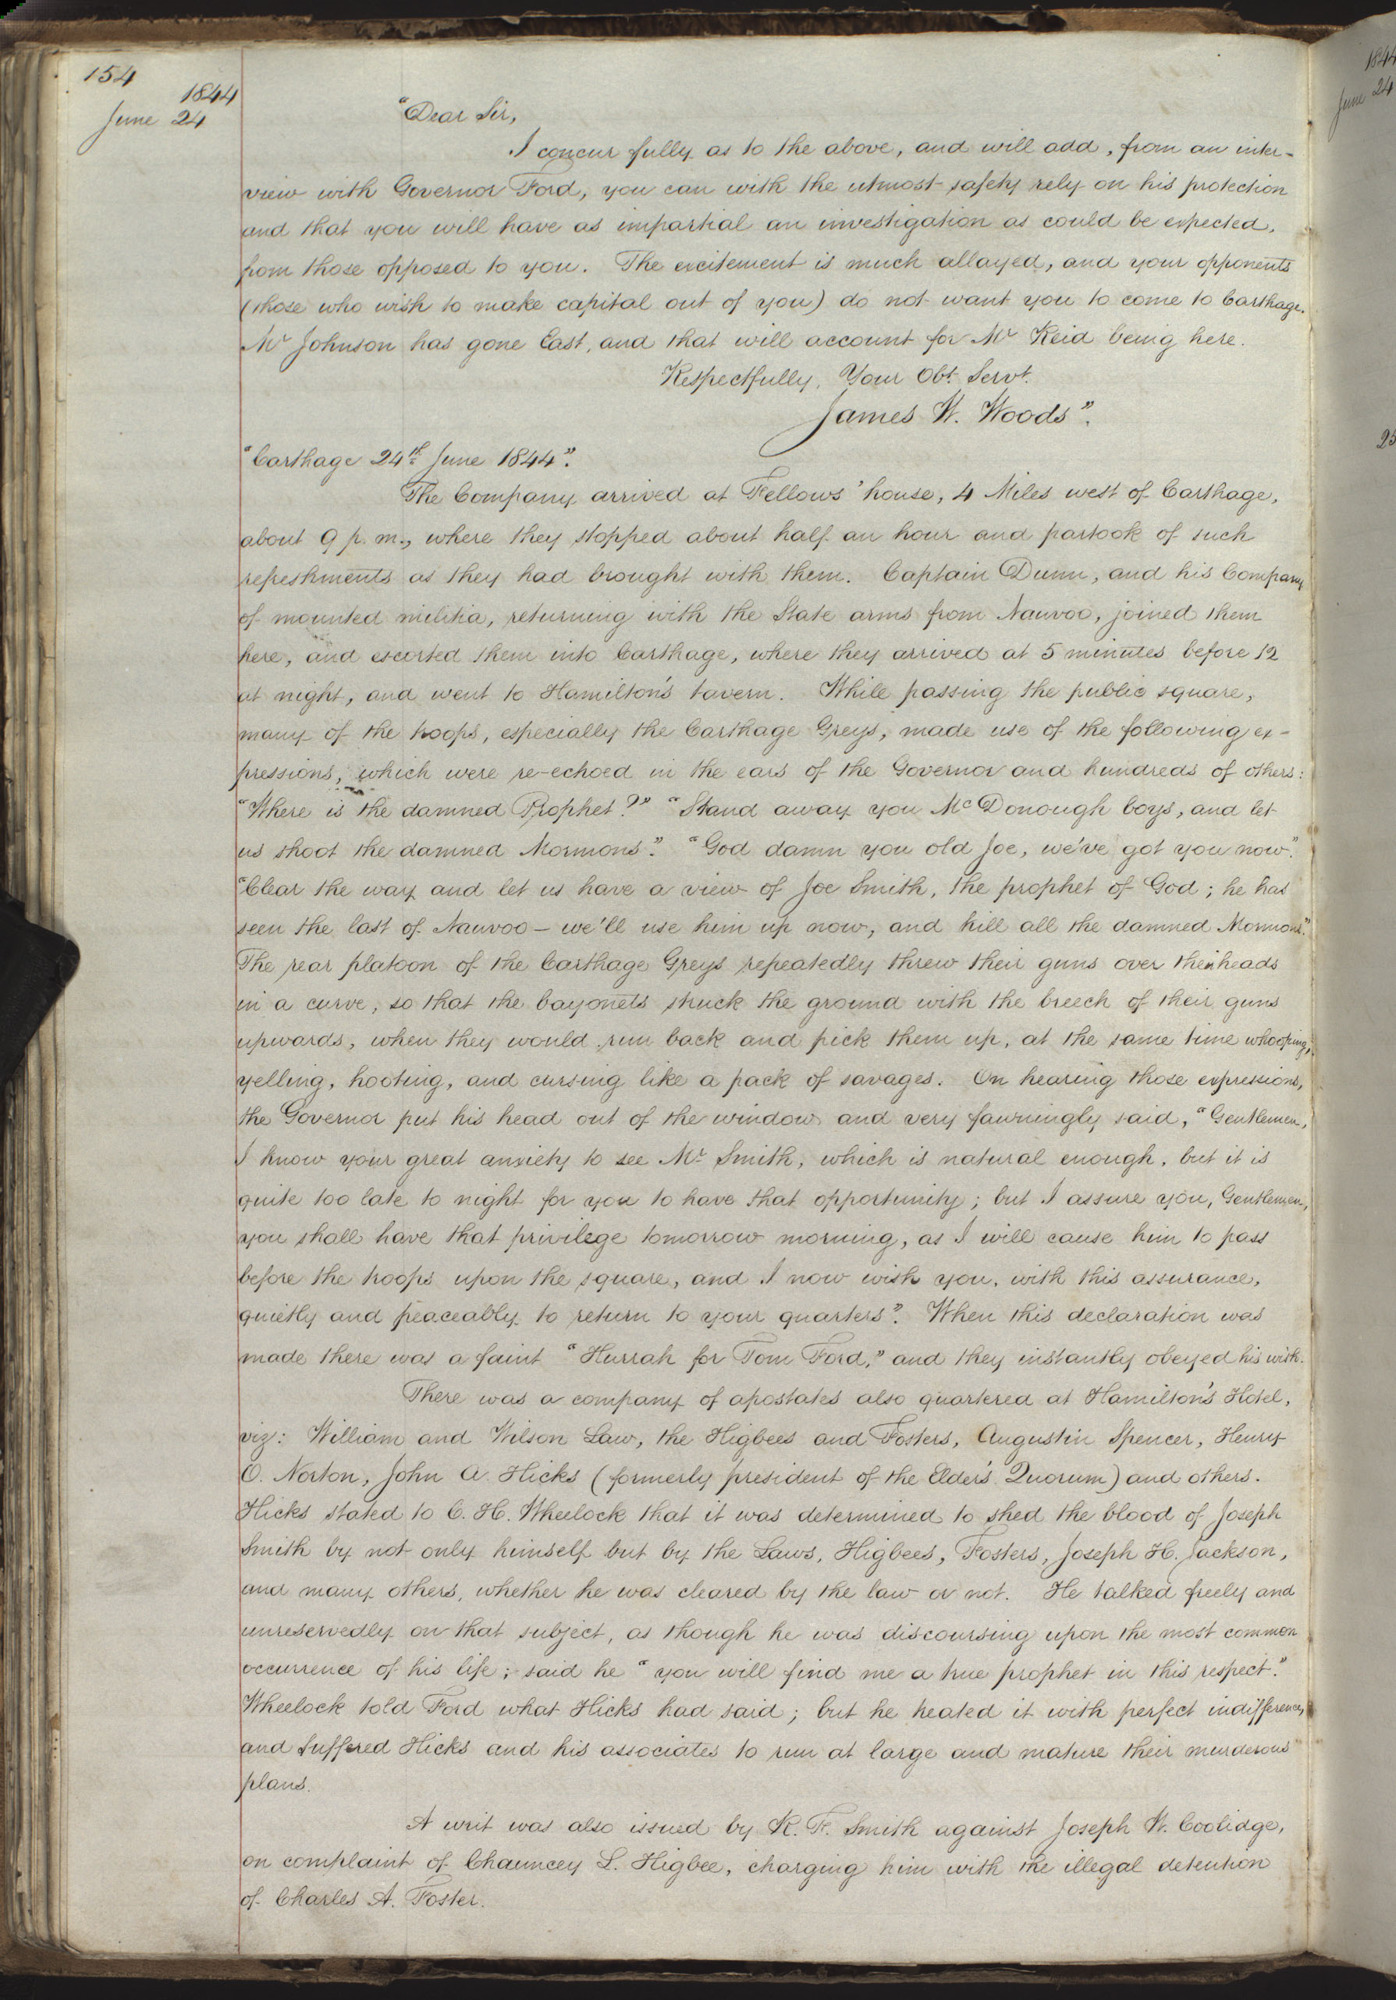 154
1844
June 24
"Dear Sir,
I concur fully as to the above, and will add, from an inter-
view with Governor Ford, you can with the utmost safety rely on his protection
and that you will have as impartial an investigation as could be expected,
from those opposed to you. The excitement is much allayed, and your opponents
(those who wish to make capital out of you) do not want you to come to Carthage.
Mr Johnson has gone East, and that will account for Mr Reid being here.
Respectfully, Your Obt. Servt.
James W. Woods".
"Carthage 24th June 1844".
The Company arrived at Fellows' house, 4 Miles west of Carthage,
about 9 p.m., where they stopped about half an hour and partook of such
refreshments as they had brought with them. Captain Dunn, and his Company
of mounted militia, returning with the State arms from Nauvoo, joined them
here, and escorted them into Carthage, where they arrived at 5 minutes before 12
at night, and went to Hamilton's tavern. While passing the public square,
many of the troops, especially the Carthage Greys, made use of the following ex-
pressions, which were re-echoed in the ears of the Governor and hundreds of others:
"Where is the damned Prophet?" "Stand away you McDonough boys, and let
us shoot the damned Mormons". "God damn you old Joe, we've got you now".
"Clear the way and let us have a view of Joe Smith, the prophet of God; he has
seen the last of Nauvoo – we'll use him up now, and kill all the damned Mormons."
The rear platoon of the Carthage Greys repeatedly threw their guns over their heads
in a curve, so that the bayonets struck the ground with the breech of their guns
upwards, when they would run back and pick them up, at the same time whooping,
yelling, hooting, and cursing like a pack of savages. On hearing those expressions,
the Governor put his head out of the window and very fawningly said, "Gentlemen,
I know your great anxiety to see Mr. Smith, which is natural enough, but it is
quite too late to night for you to have that opportunity; but I assure you, Gentlemen,
you shall have that privilege tomorrow morning, as I will cause him to pass
before the troops upon the square, and I now wish you, with this assurance,
quietly and peaceably to return to your quarters". When this declaration was
made there was a faint "Hurrah for Tom Ford," and they instantly obeyed his wish.
There was a company of apostates also quartered at Hamilton's Hotel,
viz: William and Wilson Law, the Higbees and Fosters, Augustin Spencer, Henry
O. Norton, John A. Hicks (formerly president of the Elder's Quorum) and others.
Hicks stated to C. H. Wheelock that it was determined to shed the blood of Joseph
Smith by not only himself but by the Laws, Higbees, Fosters, Joseph H. Jackson,
and many others, whether he was cleared by the law or not. He talked freely and
unreservedly on that subject, as though he was discoursing upon the most common
occurrence of his life; said he "you will find me a true prophet in this respect."
Wheelock told Ford what Hicks had said; but he treated it with perfect indifference,
and suffered Hicks and his associates to run at large and mature their murderous
plans.
A writ was also issued by R. F. Smith against Joseph W. Coolidge,
on complaint of Chauncey L. Higbee, charging him with the illegal detention
of Charles A. Foster.
1844
June 24
25